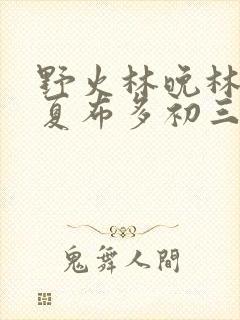 野火林晚林
夏布多初三
鬼舞人間